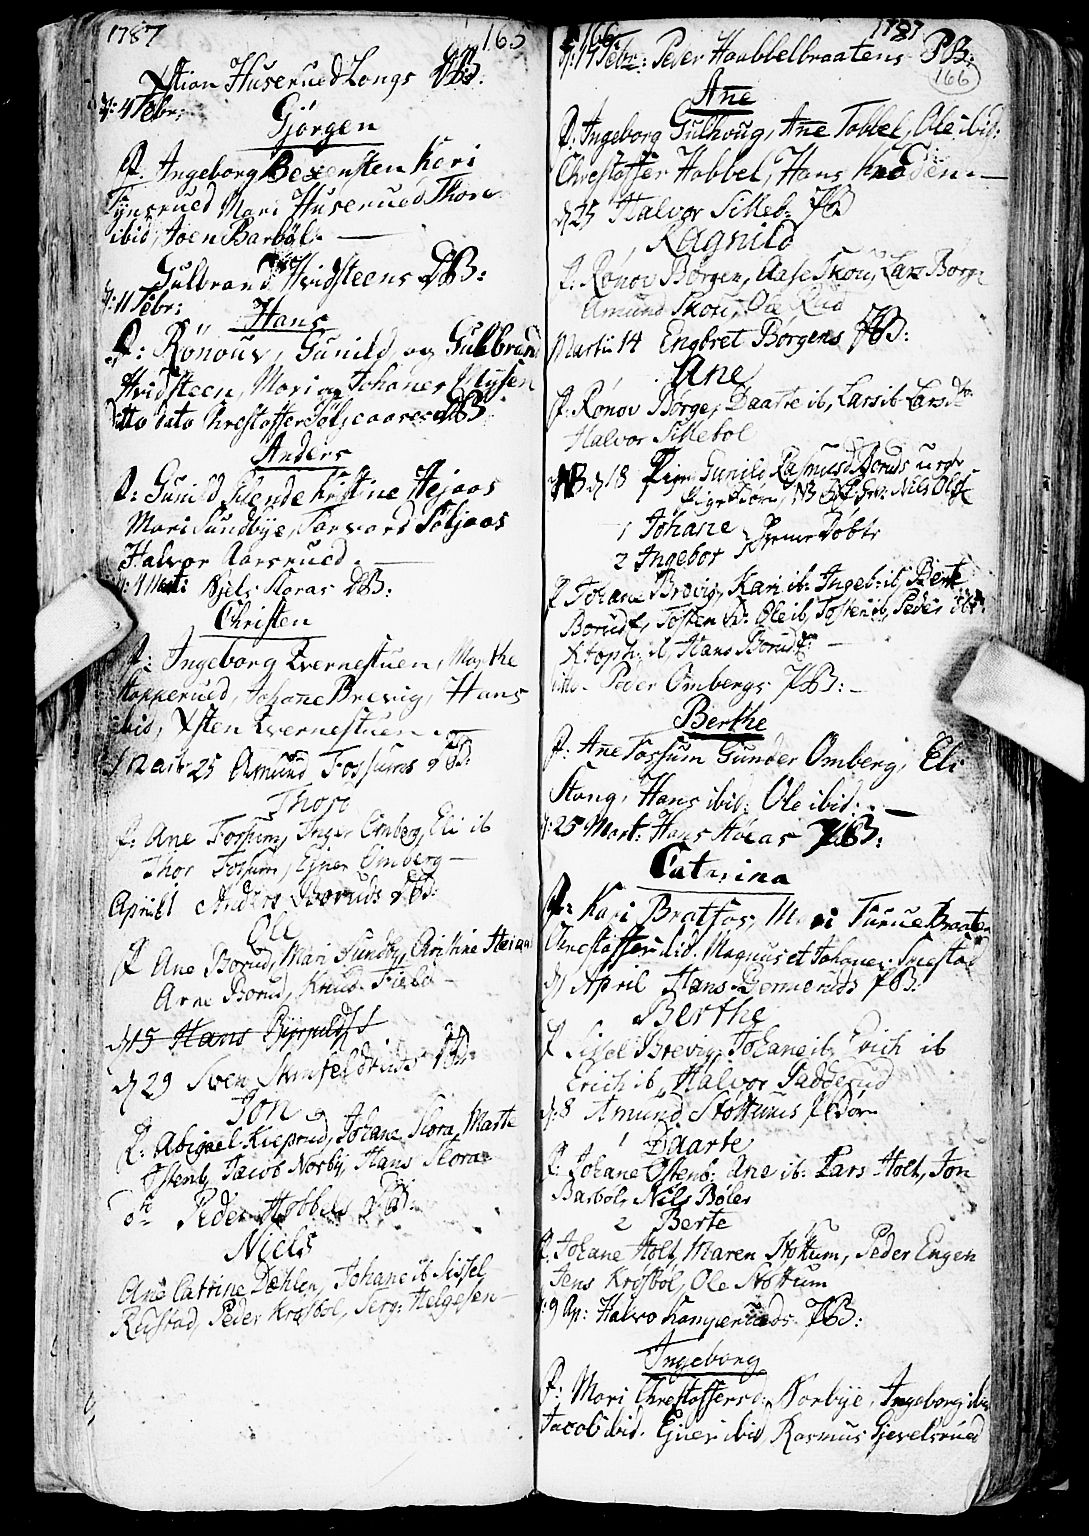 1787
165
Xstian Huserued Longs DB:
d: 4 Febr:
Gjörgen
F. Ingeborg Bexensten Kari
Tynsrued Mari Huserued Thore
ibid, Joen Barböl. —
Gulbrand Hvidsteens DB:
d: 11 Febr:
Hans
F: Rönouv, Gunild og Gulbrand
Hvidsteen, Maria Johanes Mysen
Ditto dato Chrestoffer DB:
Anders
F: Gunild Kristine Hejaas
Mari Sundbye, Torvord Töljaas
Halvor Aarsrued. —
d: 4 Marti Kjels Skoras DB:
Christen
F: Ingeborg Kvernestuen, Marthe
Kopperued, Johane Brevig, Hans
ibid, Xsten Kvernestuen
25 Amund Fossums DB:
Thoro
F: Ane Fossum, Inger Omberg, Eli ib
Thor Fossum, Ejner Omberg —
April 1 Anders Boruds DB:
Ole
F Ane Borud, Mari Sundby, Christine
Arne Borud, Knud Field
d 15 Hans
d 29 Sven DB:
Jon
F: Abigael Kieprud, Johane Skora, Marte
Ostenb, Jacob Norby, Hans Skora
Peder Hobbels DB:
Niels
Ane Cattrine Dæhlen, Johane ib Sissel
Rustad, Peder Krosböl, Serg: Helgesen —
166
1787
d: 14 Febr: Peder Haabbelbraatens PB:
166
Ane
F: Ingeborg Gulhoug, Ane Tobbel, Ole ibid:
Chrestoffer Hobbel, Hans —
d 25 Halvor Silleb: PB
Ragnild
F: Rönov Börgen, Aase Skou, Lars Borge
Amund Skou, Ole Rud
Martii 14 Engbret Börgens PB:
Ane
F: Rönov Borge, Daarte ib, Lars ib Lars
Halvor Sillebol
NB d 18 Pigen Gunild Rasmusd Boruds
Nils Ols
1 Johane
2 Ingebor
F Johane Brevig, Kari ib: Ingeb: ib, Berte
Borud, Tosten ib: Ole ib, Tosten ib, Peder ib
Xtoph: ib, Hans Borud —
Peder Ombergs PB: —
Berthe
F: Ane Fossum Gunder Omberg, Eli
Stang, Hans ibid: Ole ibid: —
d: 25 Mart: Hans PB:
Catrina
F: Kari Bratfos, Mari Turue Braaten
Chrestoffer ibid. Magnus et Johanes
d April Hans PB:
Berthe
F Sissel Brevig, Johane ib, Erich ib
Erich ib, Halvor Padderud
d: 8 Amund Stöttums
1 Daarte
F: Johane Ostenb: Ane ib: Lars Holt, Jon
Barböl, Nils Böler
2 Berte
F. Johane Holt, Maren Stöttum, Peder Engen
Jens Krosböl, Ole Stöttum
d: 9 Ap: Halvo Kamperuds PB:
Ingeborg
F: Mari Chrestoffersd., Norbye, Ingeborg ibid
Jacob ibid. Gjuer ibid, Rasmus Gjevelsrued